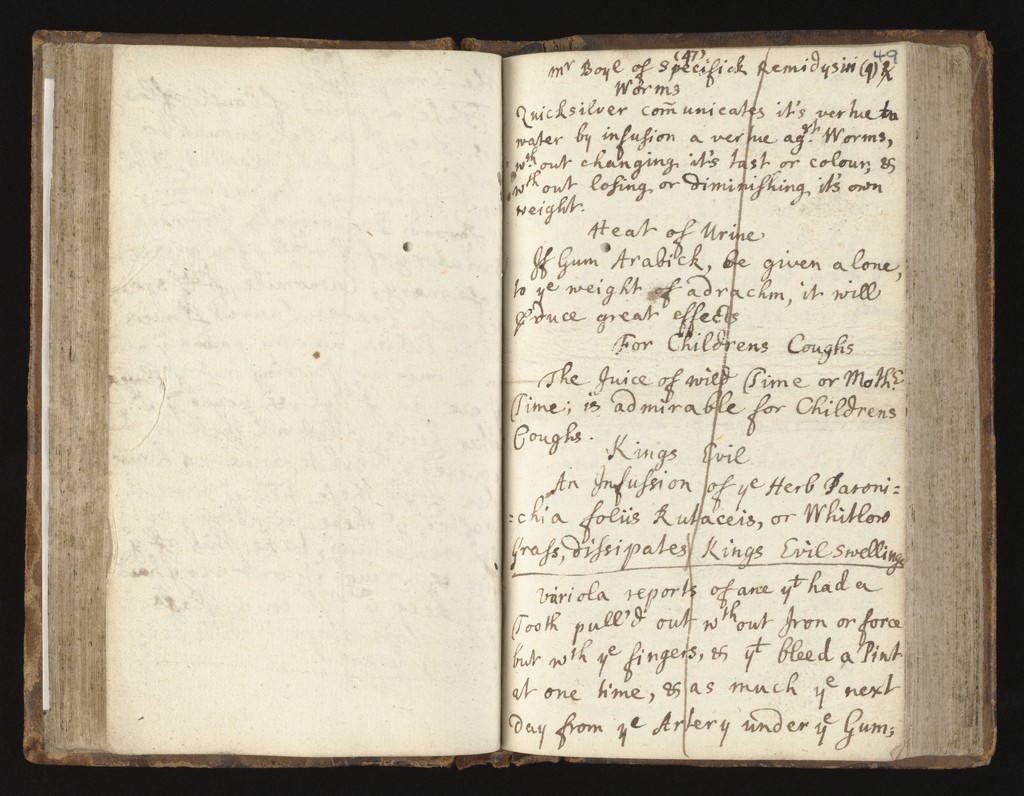 (47)
49
Mr Boyl of Specifick Remidysin (q) &
Worms
Quicksilver com̃unicates it's vertue to
water by infusion a vertue agst. Worms,
wth out changing it's tast or colour, &
wth out losing or diminishing it's own
weight.
Heat of Urine
If Gum Arabick, be given alone,
to ye weight of a drachm, it will
produce great effects
For Childrens Coughs
The Juice of wild Time or Mothr
Time; is admirable for Childrens
Coughs.
Kings Evil
An Infussion of ye Herb Paroni=
=chia foliis Rutaceis, or Whitlow
Grass, dissipates Kings Evil swellings
Variola reports of ane yt had a
Tooth pull'd out wth out Iron or force
but wth ye fingers, & yt bleed a Pint
at one time, & as much ye next
Day from ye Artery under ye Gum;